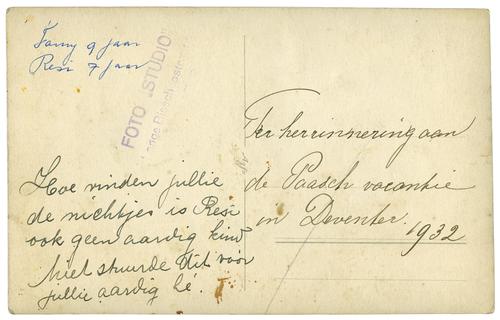 Fanny 9 jaar
Resi 7 jaar
FOTO "STUDIO"
Hoe vinden jullie
de nichtjes is Resi
ook geen aardig kind
Niet stuurde dit voor
jullie aardig hé.
Ter herrinnering aan
de Paasch vacantie
in Deventer.
1932